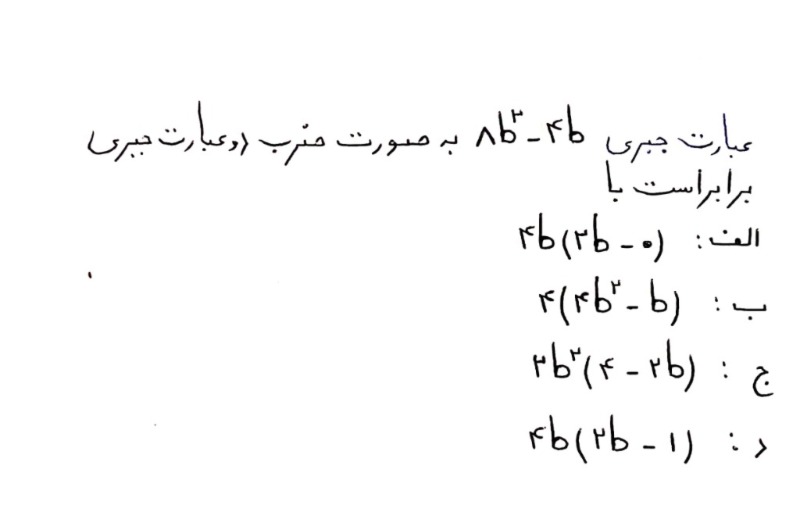 عبارت جبری ۸b²-۴b به صورت ضرب (دوعبارت جبری)
برابراست با
الف: ۴b(۲b-۰)
ب: ۴(۴b²-b)
ج: ۲b²(۴-۲b)
د: ۴b(۲b-۱)